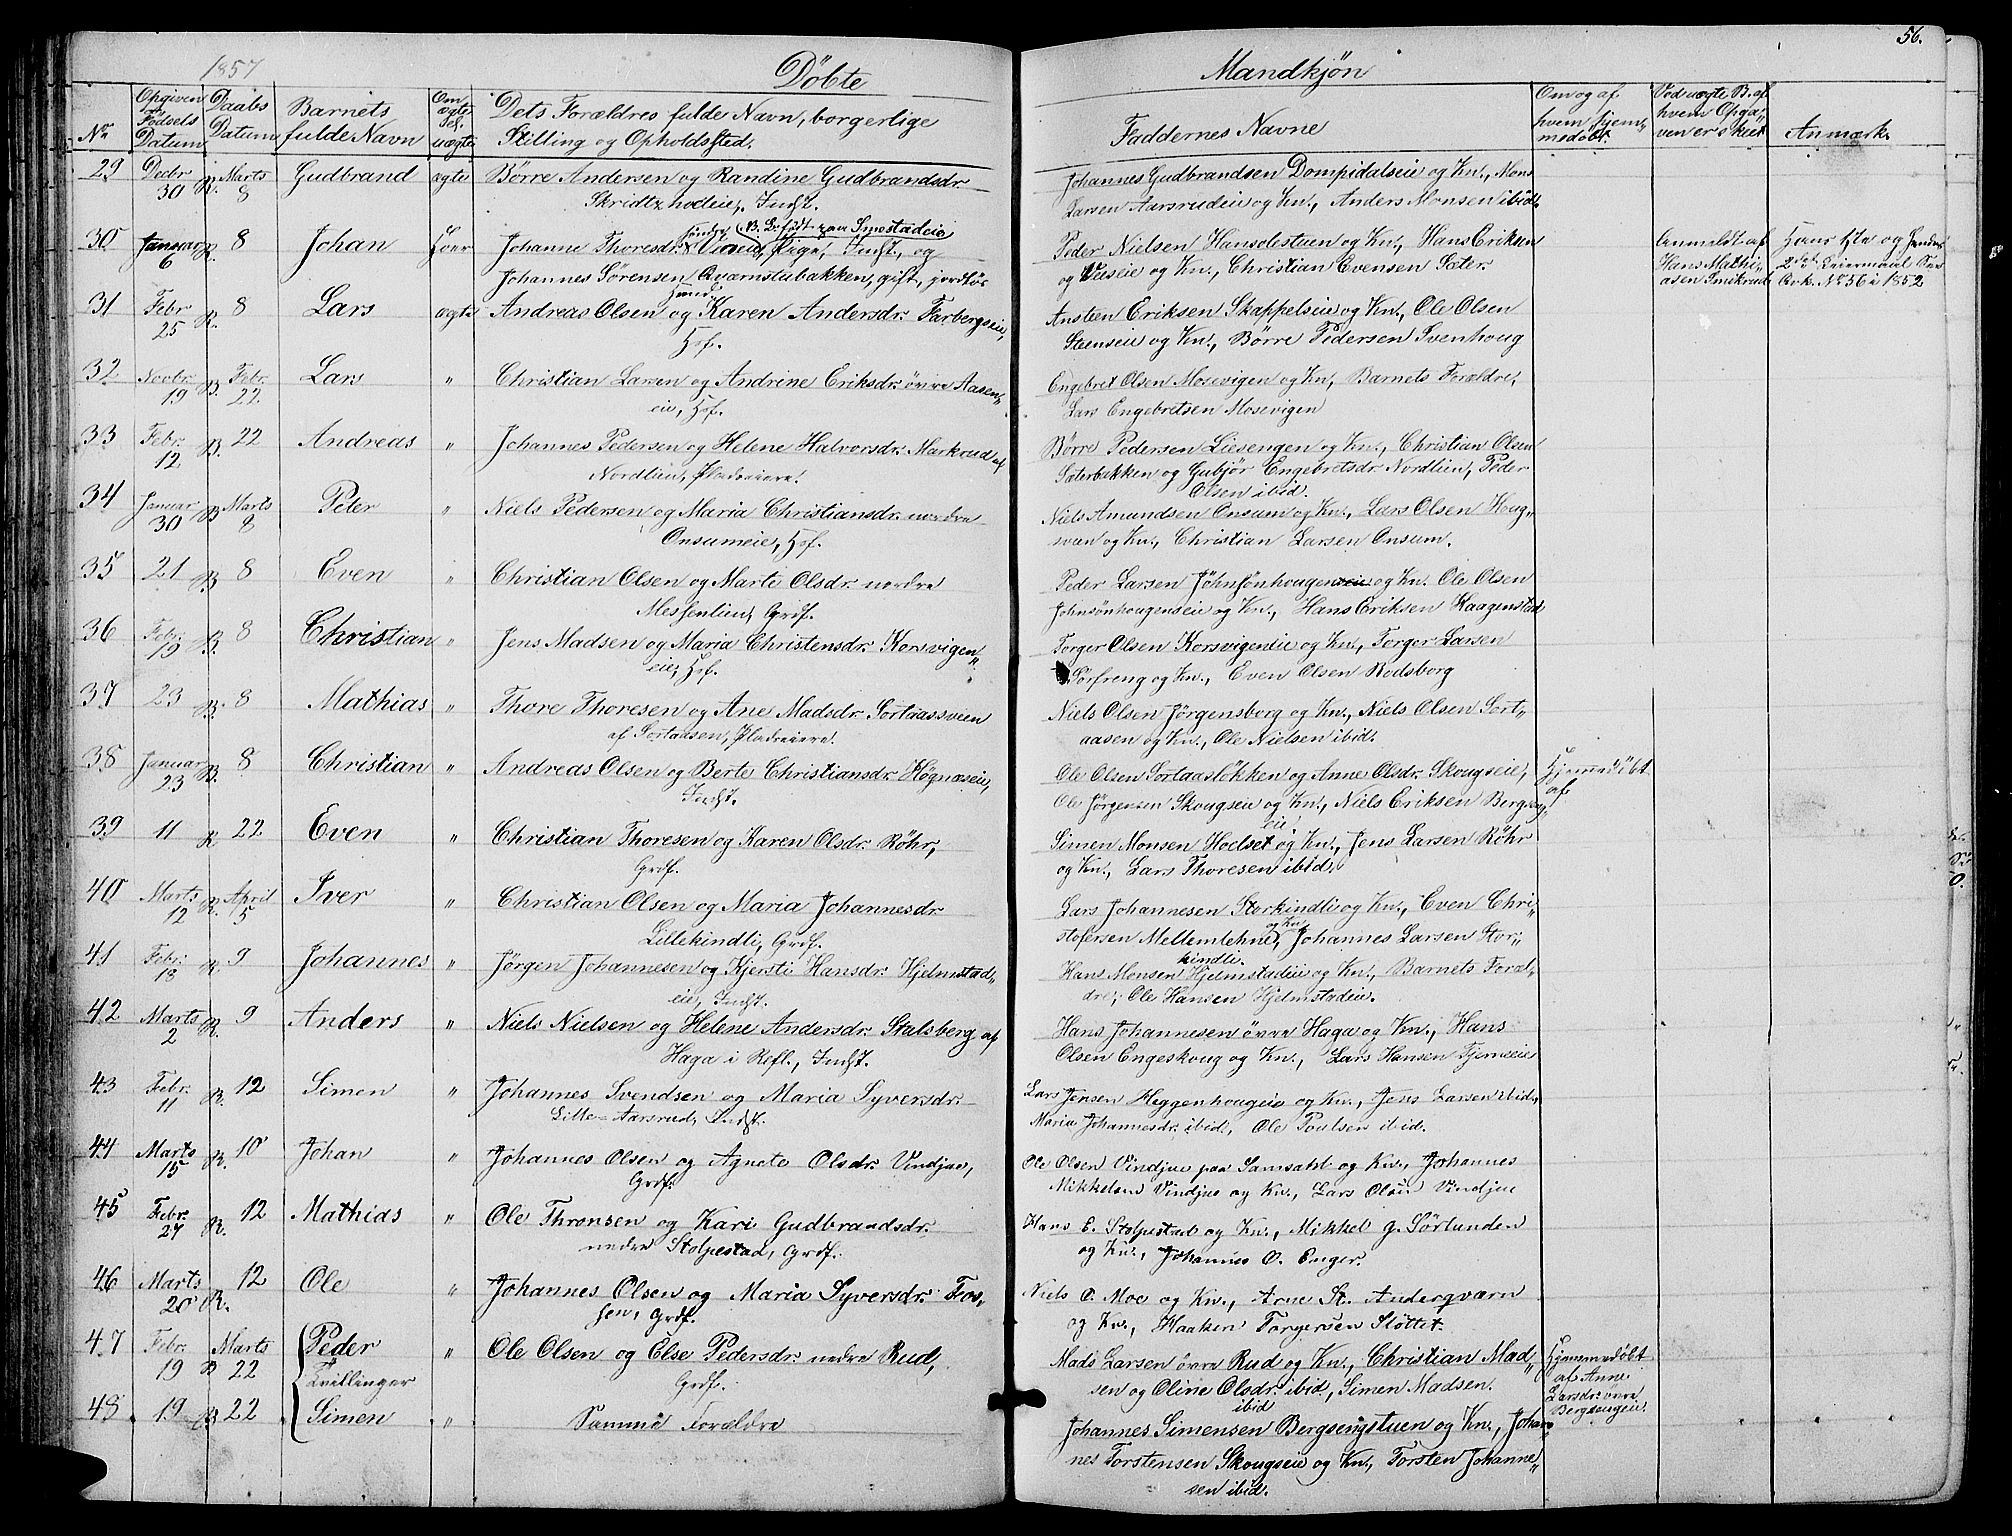 56.
1857
Döbte
Mandkjön
No.
Opgiven Fødsels Datum
Daabs Datum
Barnets fulde Navn
Om ægte el. uægte
Dets Forældres fulde Navn, borgerlige Stilling og Opholdssted.
Faddernes Navne
Om og af hvem hjemmedøbt.
Ved uægte B. af hvem Opgaven er skeet
Anmærk.
29 Decbr 30 R. Marts 8 Gudbrand ægte Børre Andersen og Randine Gudbrandsdr
Johannes Gudbrandsen Dompidalseie og Kn., Mons
Larsen Aarsrudeie og Kn., Anders Monsen ibid.
30 Januar 6 R. 8 Johan Johanne Thoresdr. Pige, Indst. og
Johannes Sörensen Qvarnstubakken, gift, jordløs
Peder Nielsen Hansolestuen og Kn., Hans Eriksen
og Kn., Christian Evensen Sæter.
Anmeldt af Hans Mathiasen
Hans 1ste og hendes 2det Leiermaal Se Ark. No 56 i 1852
31 Febr 25 R. 8 Lars ægte Andreas Olsen og Karen Andersdr. Farbergseie,
Hof.
Ansteen Eriksen Skappelseie og Kn., Ole Olsen
Steenseie og Kn., Börre Pedersen Svenhoug
32 Novbr. 19 B. Febr. 22 Lars " Christian Larsen og Andrine Eriksdr. övre Aasen„
eie, Hof.
Engebret Olsen Mosevigen og Kn., Barnets Forældre,
Lars Engebretsen Mosevigen
33 Febr. 12 B. 22 Andreas " Johannes Pedersen og Helene Halvorsdr. Markrud af
Nordlien, Pladseiere.
Börre Pedersen Liesengen og Kn., Christian Olsen
Sæterbakken og Gubjör Engebretsdr Nordlien, Peder
Olsen ibid.
34 Januar 30 B. Marts 8 Peter " Niels Pedersen og Maria Christiansdr. nordre
Onsumeie, Hof.
Niels Amundsen Onsum og Kn., Lars Olsen Houg„
sveen og Kn., Christian Larsen Onsum.
35 21 B. 8 Even " Christian Olsen og Marte Olsdr. nordre
Messenlien, Grdf.
Peder Larsen Jöhnsönhougenseie og Kn. Ole Olsen
Johnsönhougenseie og Kn., Hans Eriksen Haagenstad
36 Febr. 19 B. 8 Christian " Jens Madsen og Maria Christensdr. Korsvigen„
eie, Hof.
Torger Olsen Korsvigeneie og Kn., Torger Larsen
Sörfreng og Kn., Even Olsen Rodsborg
37 23 B. 8 Mathias " Thore Thoresen og Ane Madsdr. Sortaassveen
af Sortaasen, Pladseiere.
Niels Olsen Jörgensberg og Kn., Niels Olsen Sort„
aasen og Kn., Ole Nielsen ibid.
38 Januar 23 B. 8 Christian " Andreas Olsen og Berte Christiansdr. Högnæseie,
Indst.
Ole Olsen Sortaaslökken og Anne Olsdr. Skougseie,
Ole Jörgensen Skougseie og Kn., Niels Eriksen Bergseng„
eie.
Hjemmedöbt af
39 11 R 22 Even " Christian Thoresen og Karen Olsdr. Röhr,
Grdf.
Simen Monsen Hoelset og Kn., Jens Larsen Röhr
og Kn., Lars Thoresen ibid.
40 Marts 12 R. April 5 Iver " Christian Olsen og Maria Johannesdr.
Lillekindli, Grdf.
Lars Johannesen Storkindli og Kn., Even Chri„
stofersen Mellemlehne, og Kn. Johannes Larsen Stor„
kindli.
41 Febr. 18 R. 9 Johannes " Jörgen Johannesen og Kjersti Hansdr. Hjelmstad„
eie, Indst.
Hans Monsen Hjelmstadeie og Kn., Barnets Foræl„
dre, Ole Hansen Hjelmstadeie.
42 Marts 2 R. 9 Anders " Niels Nielsen og Helene Andersdr. Stalsberg af
Haga i Refl., Indst.
Hans Johannesen övre Haga og Kn., Hans
Olsen Engeskoug og Kn., Lars Hansen Tjerneeie
43 Febr. 11 R. 12 Simen " Johannes Svendsen og Maria Syversdr.
Lille-Aarsrud, Indst.
Lars Jensen Heggenhougeie og Kn., Jens Larsen ibid.,
Maria Johannesdr. ibid., Ole Poulsen ibid.
44 Marts 15 R. 10 Johan " Johannes Olsen og Agnete Olsdr. Vindjue,
Grdf.
Ole Olsen Vindjue paa Samsaht og Kn., Johannes
Mikkelsen Vindjue og Kn., Lars Olsen Vindjue
45 Febr. 27 R. 12 Mathias " Ole Thronsen og Kari Gudbrandsdr.
nedre Stolpestad, Grdf.
Hans E. Stolpestad og Kn., Mikkel G. Sörlunden
og Kn., Johannes O. Enger.
46 Marts 20 R. 12 Ole " Johannes Olsen og Maria Syversdr. Fos„
sen, Grdf.
Niels O. Moe og Kn., Arne St. Anderqværn
og Kn., Haaken Torgersen Slöttet.
47 Febr. 19 B Marts 22 Peder " Ole Olsen og Else Pedersdr. nedre Rud,
Tvillinger
Grdf.
Mads Larsen övre Rud og Kn., Christian Mad„
sen og Oline Olsdr. ibid, Simen Madsen.
ibid
Hjemmedöbt af Anne Larsdr. övre Bergsengeie.
48 19 B 22 Simen " Samme Forældre
Johannes Simensen Bergsengstuen og Kn., Johan„
nes Torstensen Skougseie og Kn., Torsten Johanne„
sen ibid.